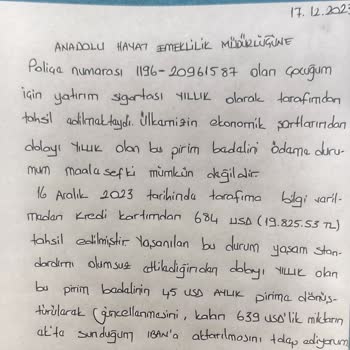 17.12.2023
ANADOLU HAYAT EMEKLİLİK MÜDÜRLÜĞÜNE
Poliçe numarası 1196-20961587 olan çocuğum
için yatırım sigortası YILLIK olarak tarafımdan
tahsil edilmekteydi. Ülkemizin ekonomik şartlarından
dolayı YILLIK olan bu pirim bedelini ödeme duru-
mum maalesefki mümkün değildir.
16 Aralık 2023 tarihinde tarafıma bilgi veril-
meden kredi kartımdan 684 USD (19.825.53 TL)
tahsil edilmiştir. Yaşanılan bu durum yaşam stan-
dardımı olumsuz etkilediğinden dolayı YILLIK olan
bu pirim bedelinin 45 USD AYLIK pirime dönüş-
türülerek güncellenmesini, kalan 639 USD'lik miktarın
ekte sunduğum IBAN'a aktarılmasını talep ediyorum